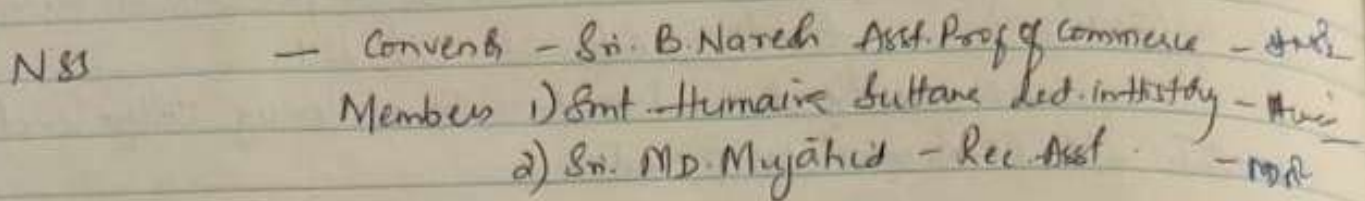 NSS — Convenor - Sri. B. Naresh Asst. Prof of Commerce -
Members 1) Smt. Humaira Sultana Lect. in History -
2) Sri. MD. Mujāhid - Rec. Asst. -